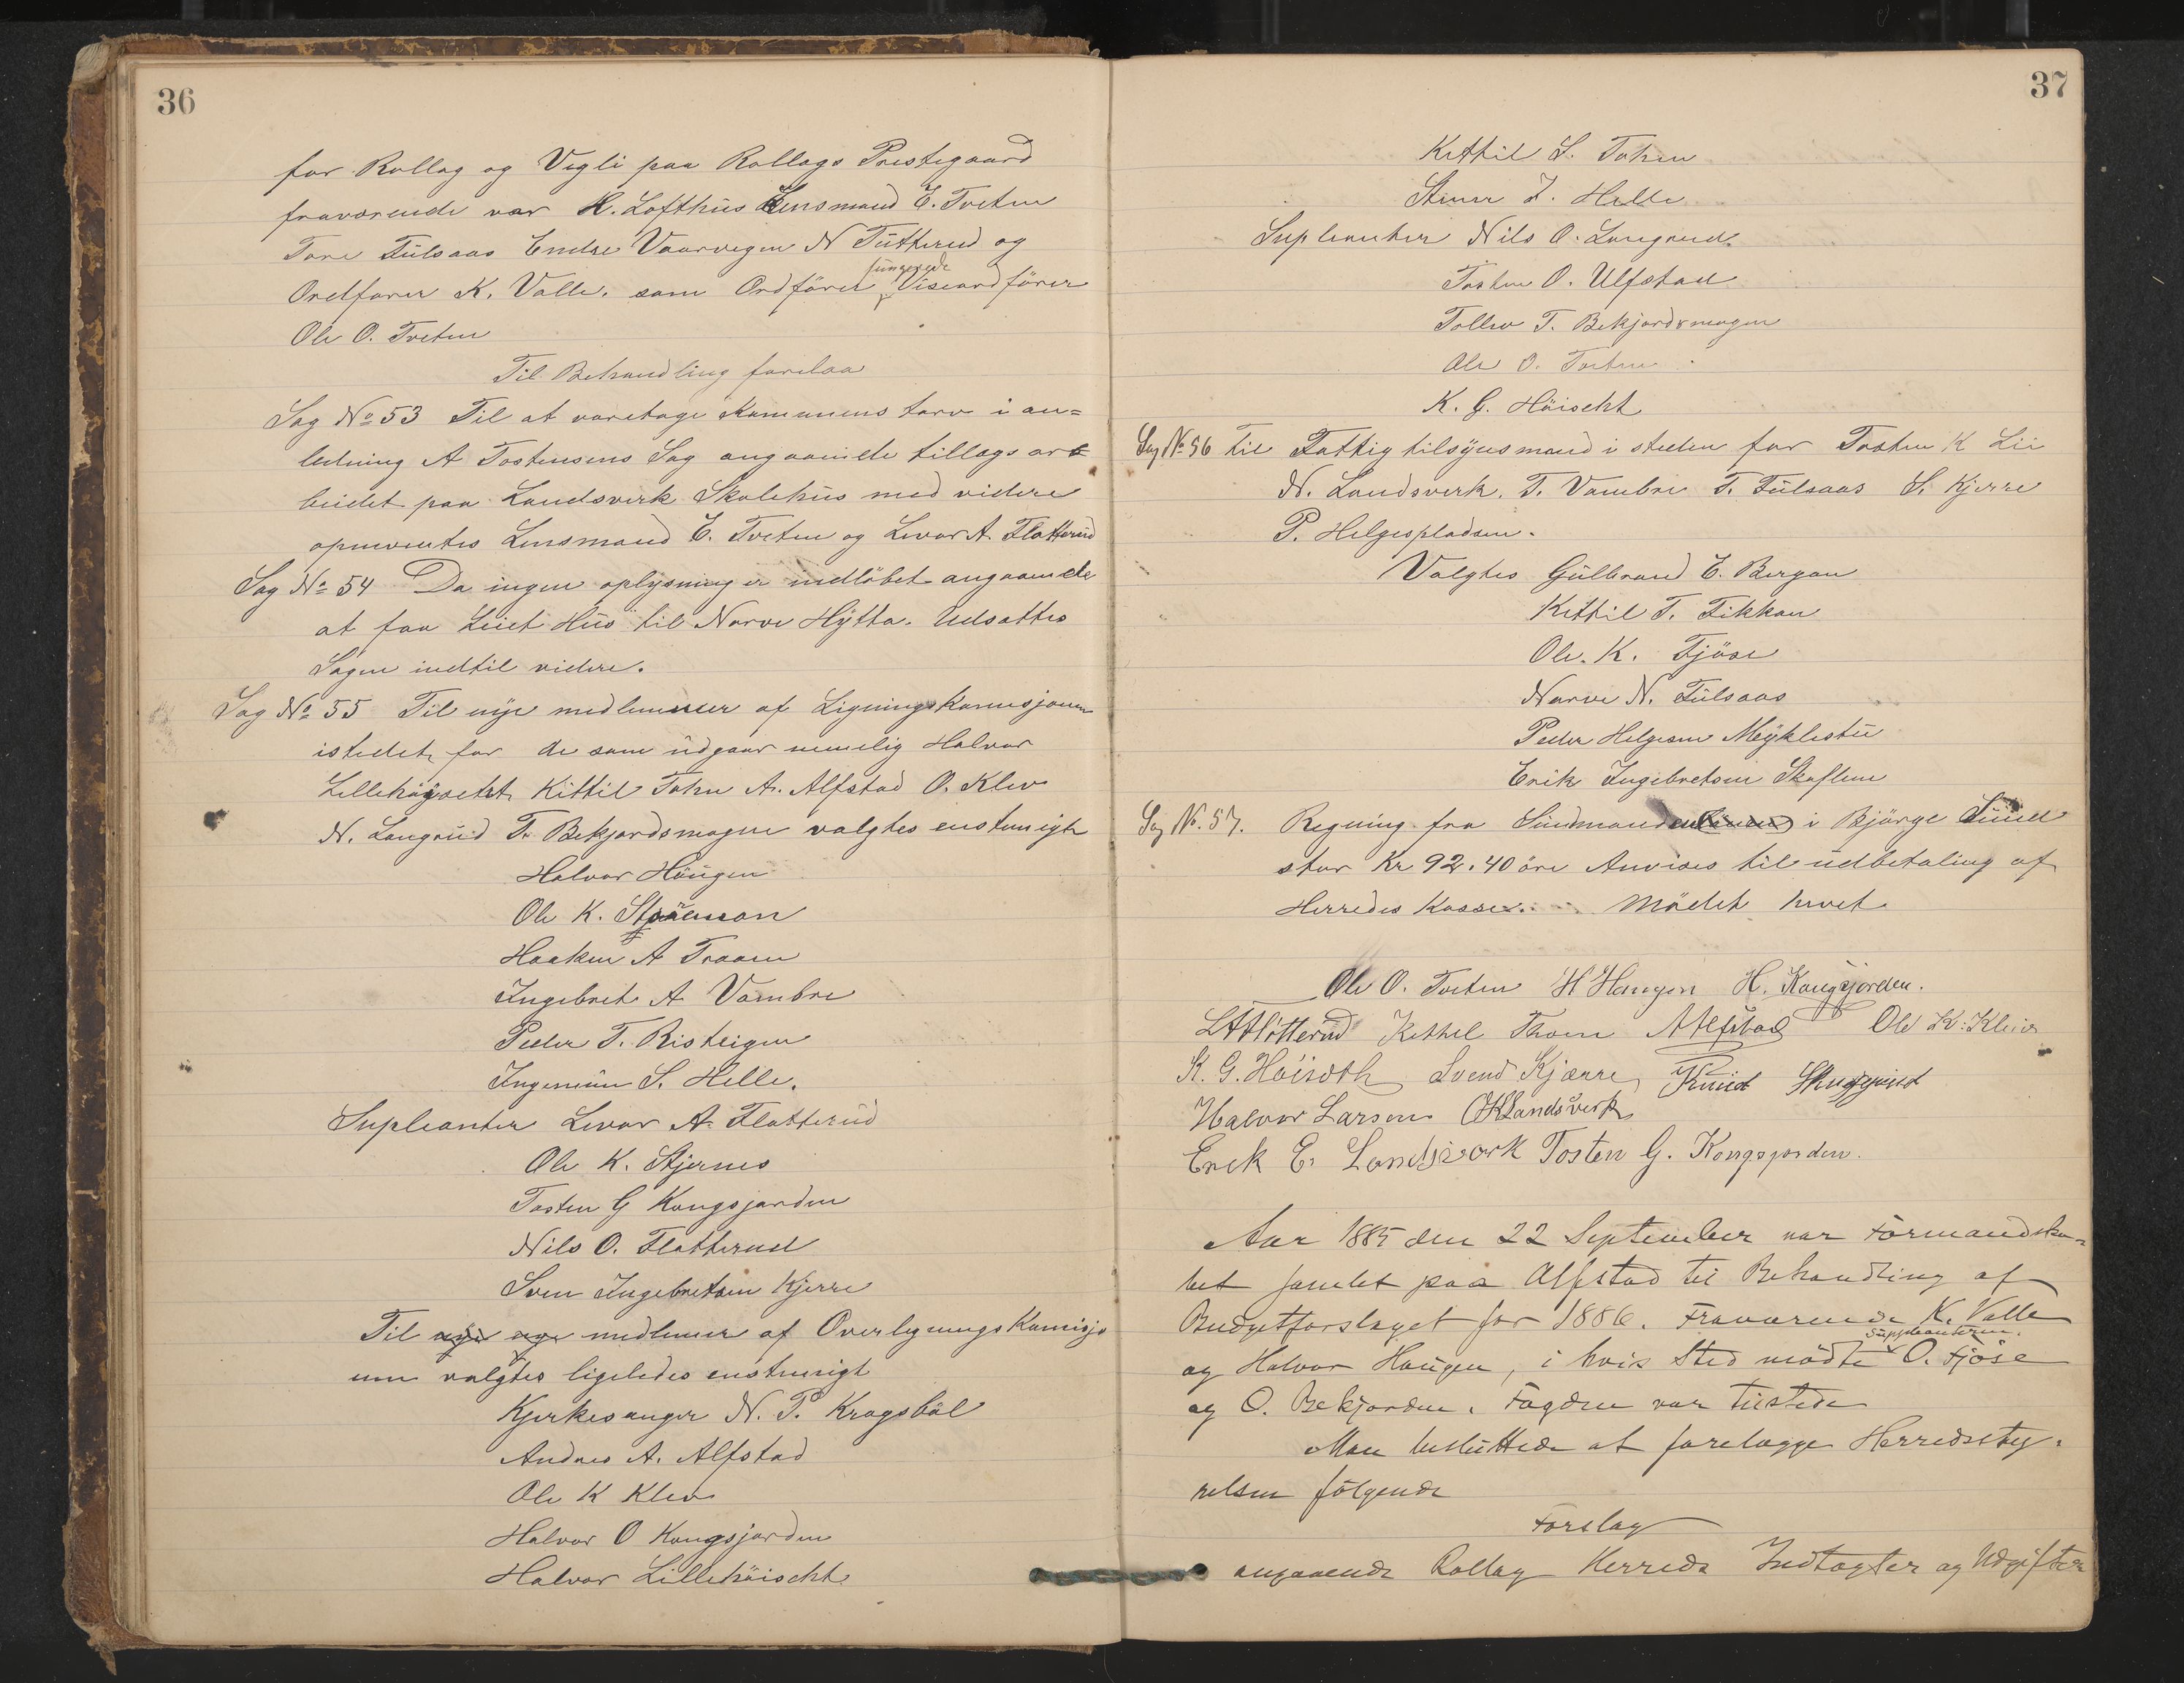 36
for Rollag og Vegli paa Rollags Prestegaard
fraværende var H. Lofthus Lensmand E. Tveten
Tore Fulsaas Endre Vaarvegen N Tutterud og
Ordfører K. Valle. som Ordfører fungerede Viseordfører
Ole O. Tveten
Til Behandling forelaa
Sag No 53 Til at varetage Kommunens tarv i an=
ledning A Tostensens Sag angaaende tillags ar
beidet paa Landsverk Skolehus med videre
opnevntes Lensmand E. Tveten og Levor A. Flatterud
Sag No 54 Da ingen oplysning er indløbet angaaende
at faa Leiet Hus til Narve Hytta. Udsattes
Sagen indtil videre.
Sag No 55 Til nye medlemmer af Ligningskommisjonen
istedet for de som udgaar nemelig Halvor
Lillehøyseht, Kittil Tohn A. Alfstad O. Klev
N. Langrud T. Bekjordsmogen valgtes enstemigt
Halvor Haugen
Ole K.
Haaken A Traaen
Ingebret A Vambre
Peder T. Risteigen
Ingemün S. Helle.
Supleanter Levor A. Flatterud
Ole K. Stjernes
Tosten G Kongsjorden
Nils O. Flatterud
Sven Ingebretsen Kjerre
Til medlemer af Overlignings Komisjo
nen valgtes ligeledes enstemigt
Kjerkesanger N. P. Kragsbøl
Andres A. Alfstad
Ole K Klev
Halvor O Kongsjorden
Halvor Lillehøiseht
37
Kittil L. Tohen
Steiner I. Helle
Supleanter Nils O. Langrud.
Tosten O. Ulfstad
Tollev T. Bekjordsmogen
Ole O. Tveten
K. G. Høiseht
Sag No 56 til Fattigtilsynsmænd i steden for Tosten K Lii
N. Landsverk. T. Vambre T. Fulsaas S. Kjerre
P. Helgespladsen.
Valgtes Gulbrand E. Bergan
Kittil T. Fikkan
Ole. K. Fjøse
Narve N. Fulsaas
Peder Helgesen Møyklestu
Erik Ingebretsen Skaflem
Sag No. 57. Regning fra Sundmanden i Bjørge Sund
stor Kr 92.40 øre Anvises til udbetaling af
Herredes Kasse. Mødet hevet.
Ole O. Tveten H Haugen H. Kongsjorden.
L A Flatterud Kettel Thoen A Alfstad Ole K. Kleiv
K. G. Høiseth Svend Kjærre, Knud
Halvor Larsen O K Landsverk
Erek E. Landsverk Tosten G. Kongsjorden.
Aar 1885 den 22 September var Formandska-
bet samlet paa Alfstad til Behandling af
Budgetforslaget for 1886. Fraværende K. Valle
og Halvor Haugen, i hvis Sted mødte Suppleanterne. O. Fjøse
og O. Bekjorden. Fogden var tilstede
Man besluttede at forelægge Herredssty-
relsen følgende
Forslag
angaaende Rollag Herreds Indtægter og Udgifter